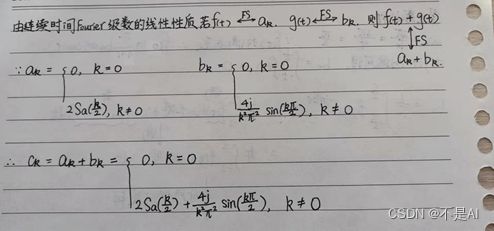 由连续时间Fourier级数的线性性质 若f(t) ⟷FS aₖ. g(t) ⟷FS bₖ. 则 f(t)+g(t)
↕FS
aₖ+bₖ.
∵ aₖ = { 0, k=0 bₖ = { 0, k=0
2Sa(k/2), k≠0 4j/(k²π²) sin(kπ/2), k≠0
∴ cₖ = aₖ+bₖ = { 0, k=0
2Sa(k/2) + 4j/(k²π²) sin(kπ/2), k≠0
CSDN @不是AI